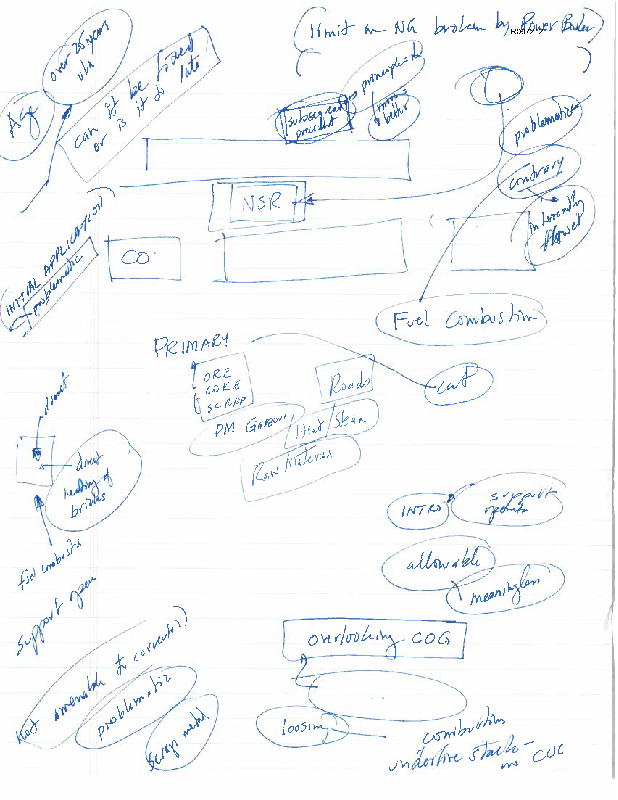 (limit on NG broken by Power Boiler)
over 25 years
old
Age
can it be forced
or is it to late
subsequent
precedent
principle
more
better
problematic
contrary
inherently
flawed
NSR
INITIAL APPLICATION
problematic
CO
Fuel Combustion
PRIMARY
ORE
COKE
SCRAP
Roads
cart
PM Gaseous
Heat/Steam
Raw Material
direct
direct
heating of
brides
fuel combusts
support open
INTRO
support
allowable
meaningless
overlooking COG
Not amenable to correction)
problematic
Scrap metal
loosing
combustion
underfire stack